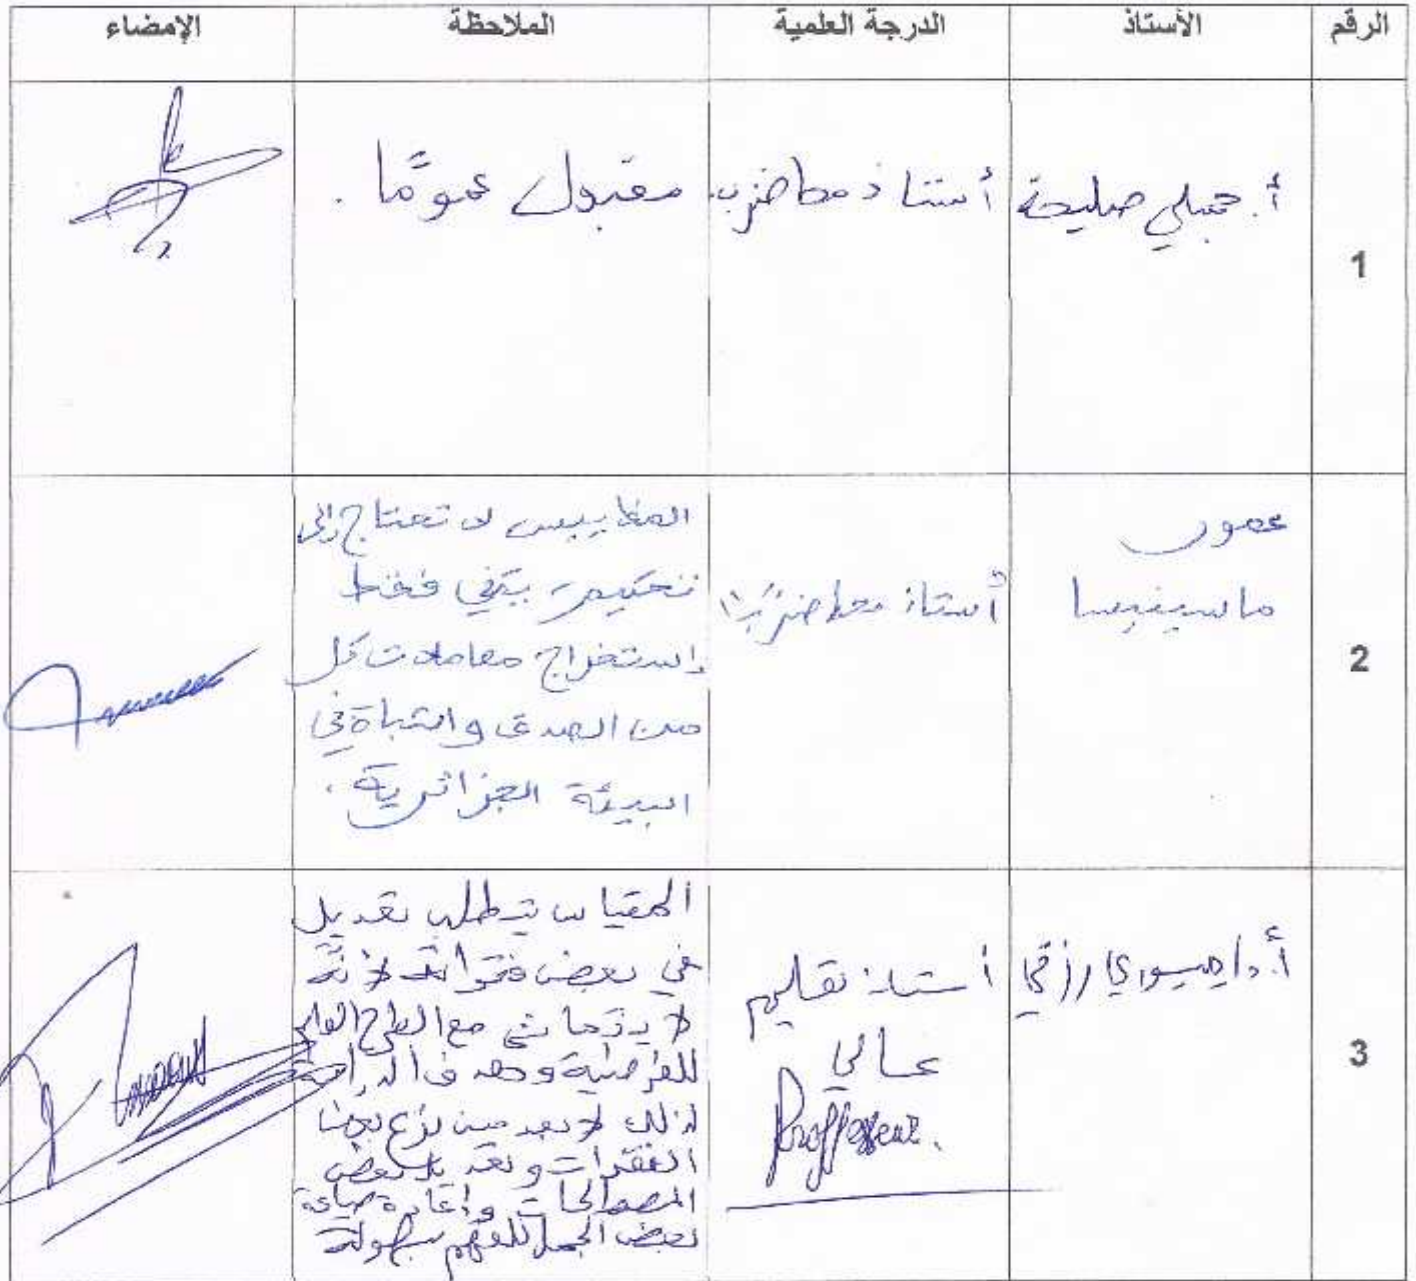 الرقم الأستاذ الدرجة العلمية الملاحظة الإمضاء
1 أ. جبلي صليحة أستاذ محاضر ب مقبول عمومًا .
2
عمور
ماسينيسا
أستاذ محاضر
المقاييس لا تحتاج إلى
تحكيم يكفي فقط
استخراج معاملات كل
من الصدق والثباة في
البيئة الجزائرية .
3
رزقي
أستاذ تعليم
عالي
Proffesseur.
المقياس يتطلب تعديل
في بعض فقراته لأنه
لا يتماشى مع الطرح العام
للفرضية وهدف الدراسة
لذلك لابد من نزع بعض
الفقرات وتعديل بعض
المصطلحات وإعادة صياغة
بعض الجمل للفهم بسهولة